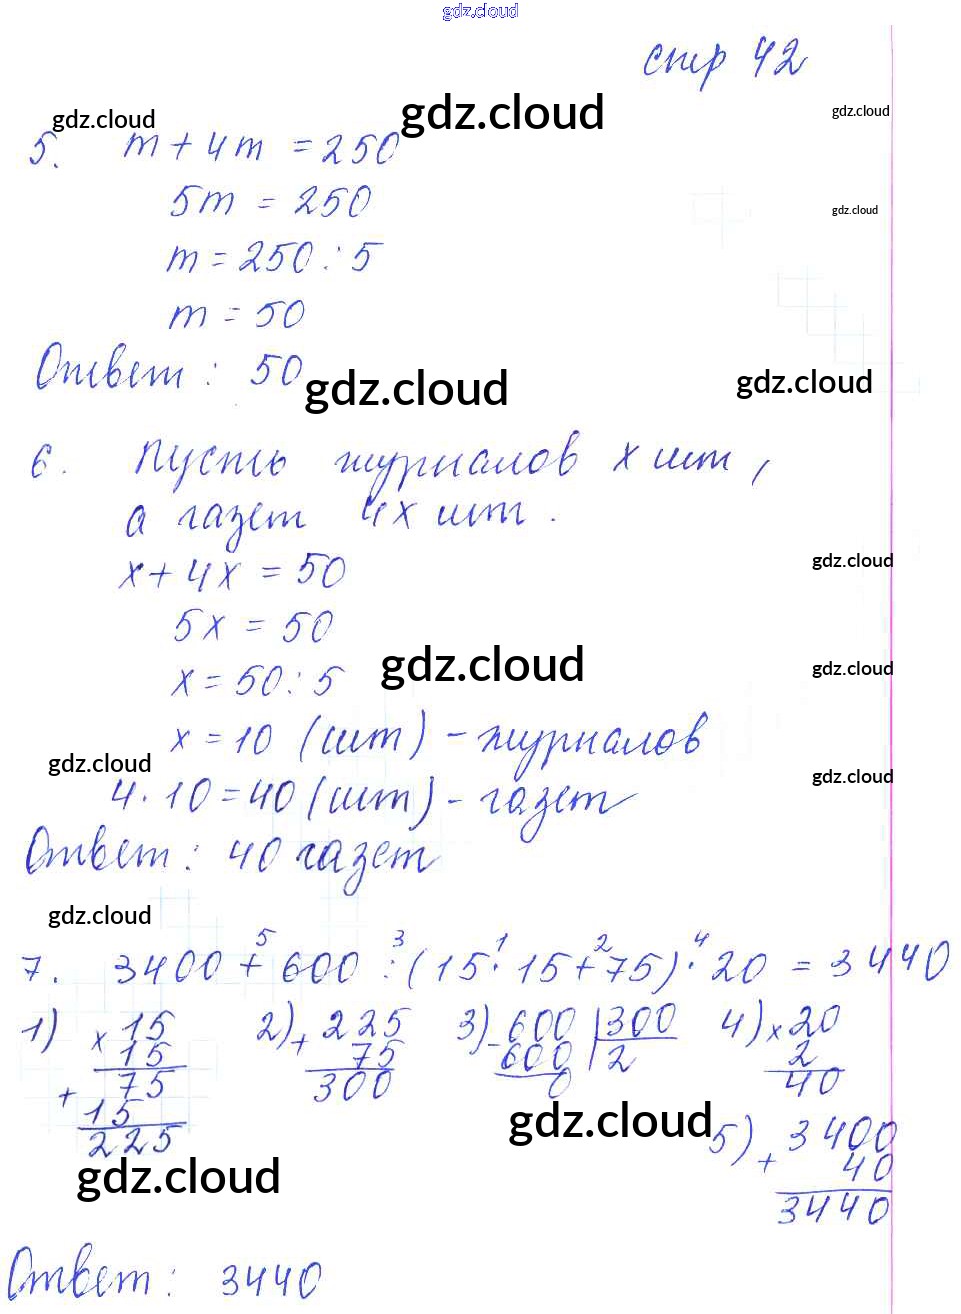 gdz.cloud
стр 42
gdz.cloud gdz.cloud gdz.cloud
5. m + 4m = 250
5m = 250
gdz.cloud
m = 250 : 5
m = 50
Ответ : 50
gdz.cloud gdz.cloud
6. Пусть журналов x шт,
а газет 4x шт.
x + 4x = 50
gdz.cloud
5x = 50
x = 50 : 5
gdz.cloud gdz.cloud
x = 10 (шт) - журналов
gdz.cloud gdz.cloud
4 · 10 = 40 (шт) - газет
Ответ : 40 газет
gdz.cloud
5 3 1 2 4
7. 3400 + 600 : (15 · 15 + 75) · 20 = 3440
1) x 15 2) + 225 3) - 600 | 300 4) x 20
15 75 600 | 2 2
+ 75 300 0 40
15
gdz.cloud
225 5) + 3400
gdz.cloud 40
3440
Ответ : 3440